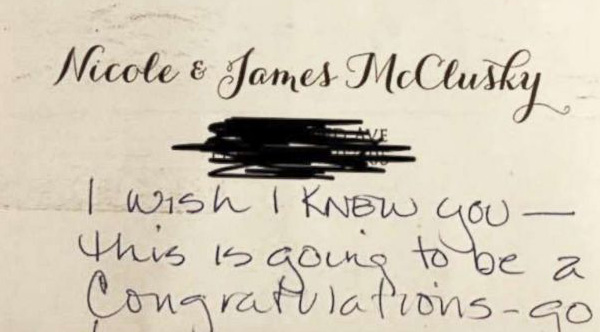 Nicole & James McClusky
AVE
I WISH I KNEW YOU —
this is going to be a
Congratulations - go